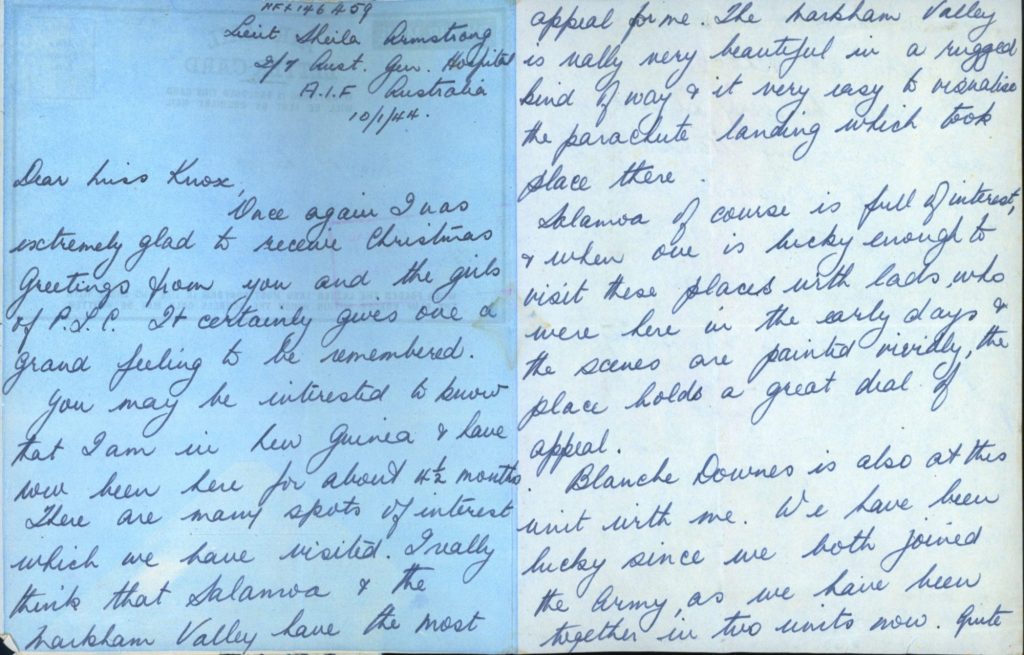 NFX146459
Lieut Sheila Armstrong
2/7 Aust. Gen. Hospital
A.I.F Australia
10/1/44.
Dear Miss Knox,
Once again I was
extremely glad to receive Christmas
Greetings from you and the girls
of P.L.C. It certainly gives one a
grand feeling to be remembered.
You may be interested to know
that I am in New Guinea & have
now been here for about 4½ months
There are many spots of interest
which we have visited. I really
think that Salamoa & the
Markham Valley have the most
appeal for me. The Markham Valley
is really very beautiful in a rugged
kind of way & it very easy to visualise
the parachute landing which took
place there.
Salamoa of course is full of interest,
& when one is lucky enough to
visit these places with lads, who
were here in the early days &
the scenes are painted vividly, the
place holds a great deal of
appeal.
Blanche Downes is also at this
unit with me. We have been
lucky since we both joined
the Army, as we have been
together in two units now. Quite